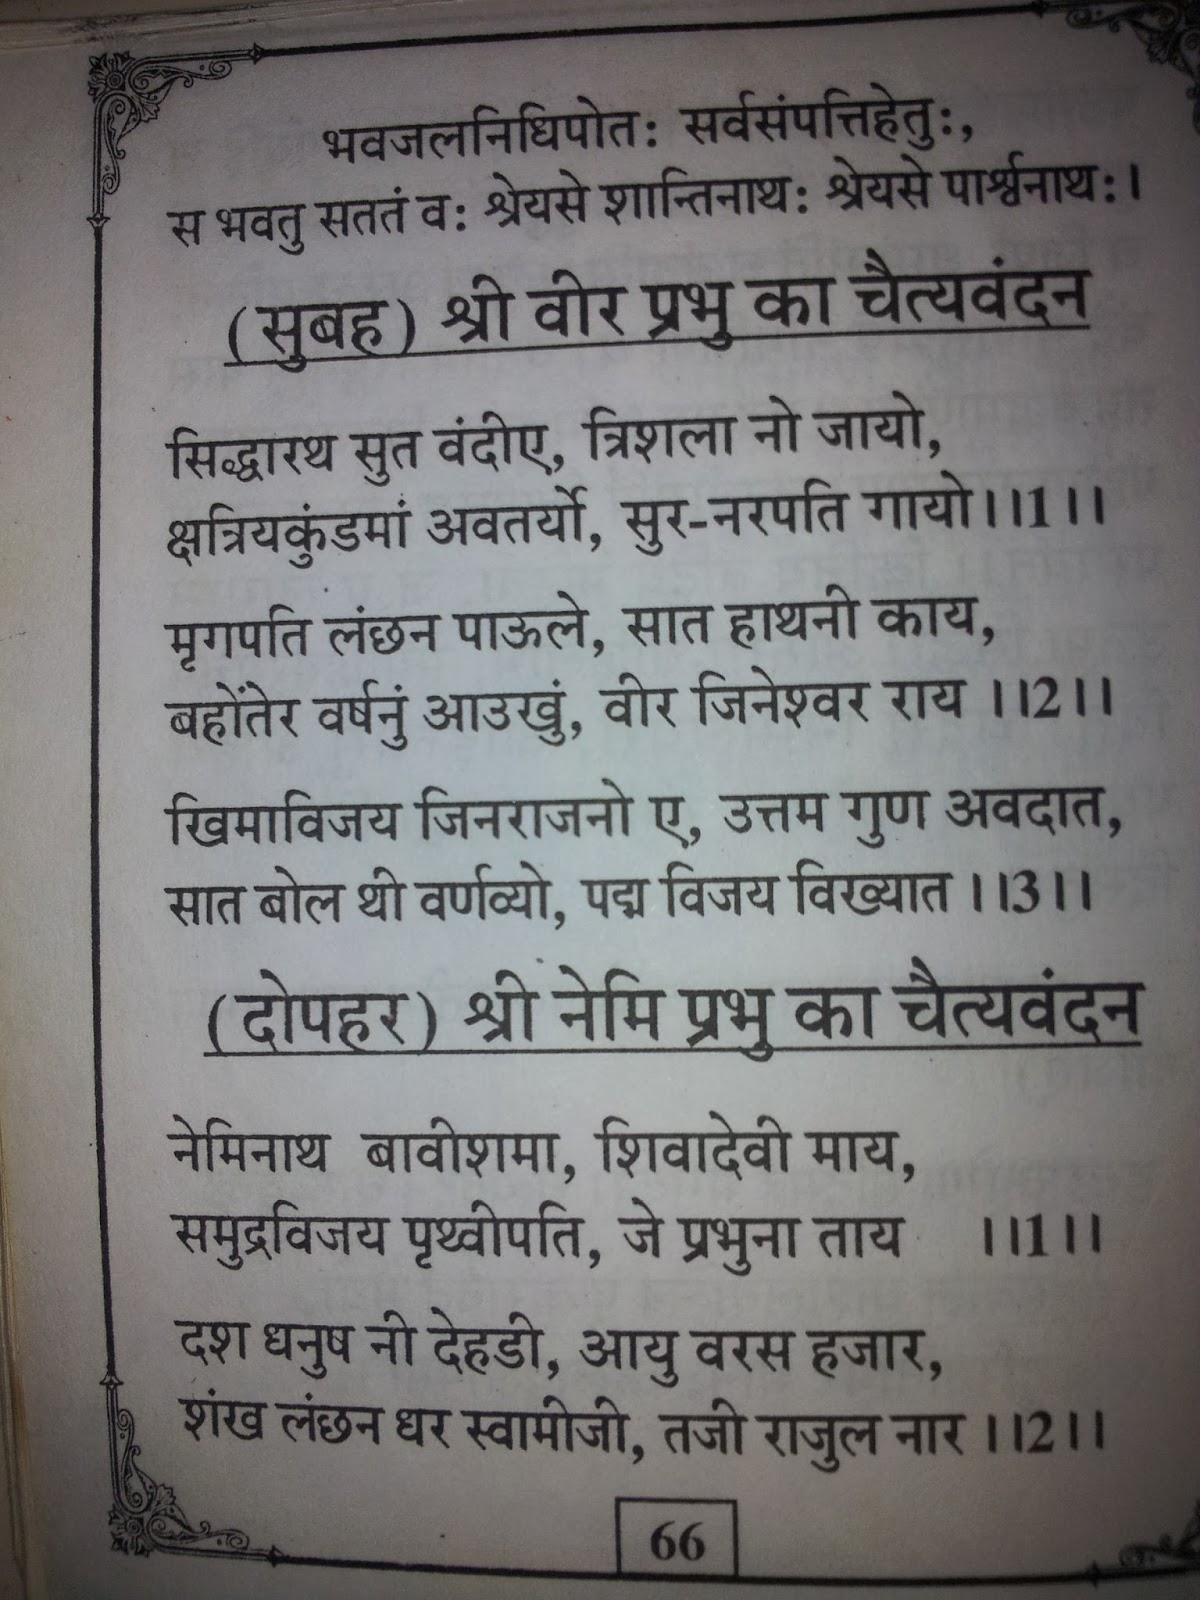 भवजलनिधिपोतः सर्वसंपत्तिहेतुः,
स भवतु सततं वः श्रेयसे शान्तिनाथः श्रेयसे पार्श्वनाथः।
(सुबह) श्री वीर प्रभु का चैत्यवंदन
सिद्धारथ सुत वंदीए, त्रिशला नो जायो,
क्षत्रियकुंडमां अवतर्यो, सुर-नरपति गायो।।1।।
मृगपति लंछन पाऊले, सात हाथनी काय,
बहोंतेर वर्षनुं आउखुं, वीर जिनेश्वर राय ।।2।।
खिमाविजय जिनराजनो ए, उत्तम गुण अवदात,
सात बोल थी वर्णव्यो, पद्म विजय विख्यात ।।3।।
(दोपहर) श्री नेमि प्रभु का चैत्यवंदन
नेमिनाथ बावीशमा, शिवादेवी माय,
समुद्रविजय पृथ्वीपति, जे प्रभुना ताय ।।1।।
दश धनुष नी देहडी, आयु वरस हजार,
शंख लंछन धर स्वामीजी, तजी राजुल नार ।।2।।
66